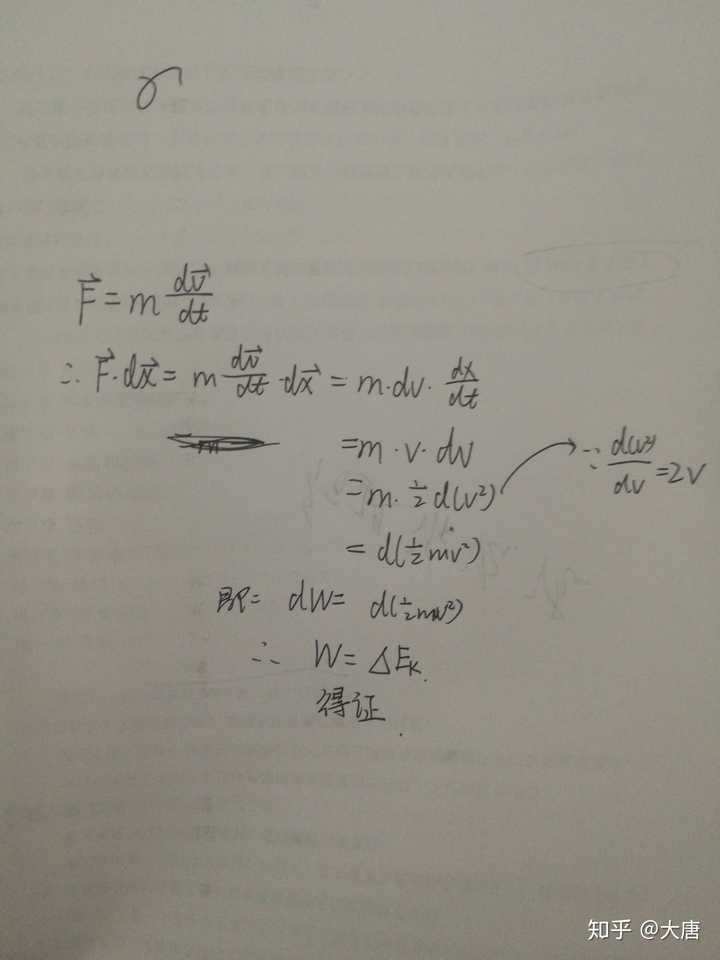 F⃗ = m dv⃗/dt
∴ F⃗·dx⃗ = m dv⃗/dt ·dx⃗ = m·dv· dx/dt
= m·v·dv
= m·½ d(v²) ∵ d(v²)/dv = 2v
= d(½mv²)
即: dW = d(½mv²)
∴ W = ΔEₖ.
得证.
知乎 @大唐